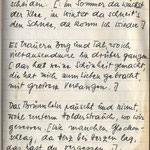 scheiden. [: im Sommer da wächst
der Klee, im Winter da schneit's
den Schnee, da komm ich wieder :]
Es trauern Berg und Tal, wo ich
viel tausendmal bin drüber gangen
[: das hat deine Schönheit gemacht
die hat mich zum Lieben gebracht
mit großem Verlangen. :]
Das Brünnlein rauscht und rinnt,
wohl unterm Holderstrauch, wo wir
gesessen, [: wie manchen Glocken-
schlag, da Herz bei Herzen lag,
das hast du vergessen :]